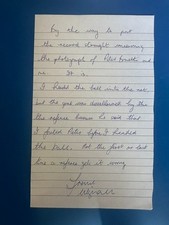 By the way to put
the record straight concerning
the photograph of Peter Bonetti and
me. It is
I headed the ball into the net
but the goal was disallowed by the
the referee because he said that
I fouled Peter before I headed
the ball. Not the first or last
time a referee gets it wrong